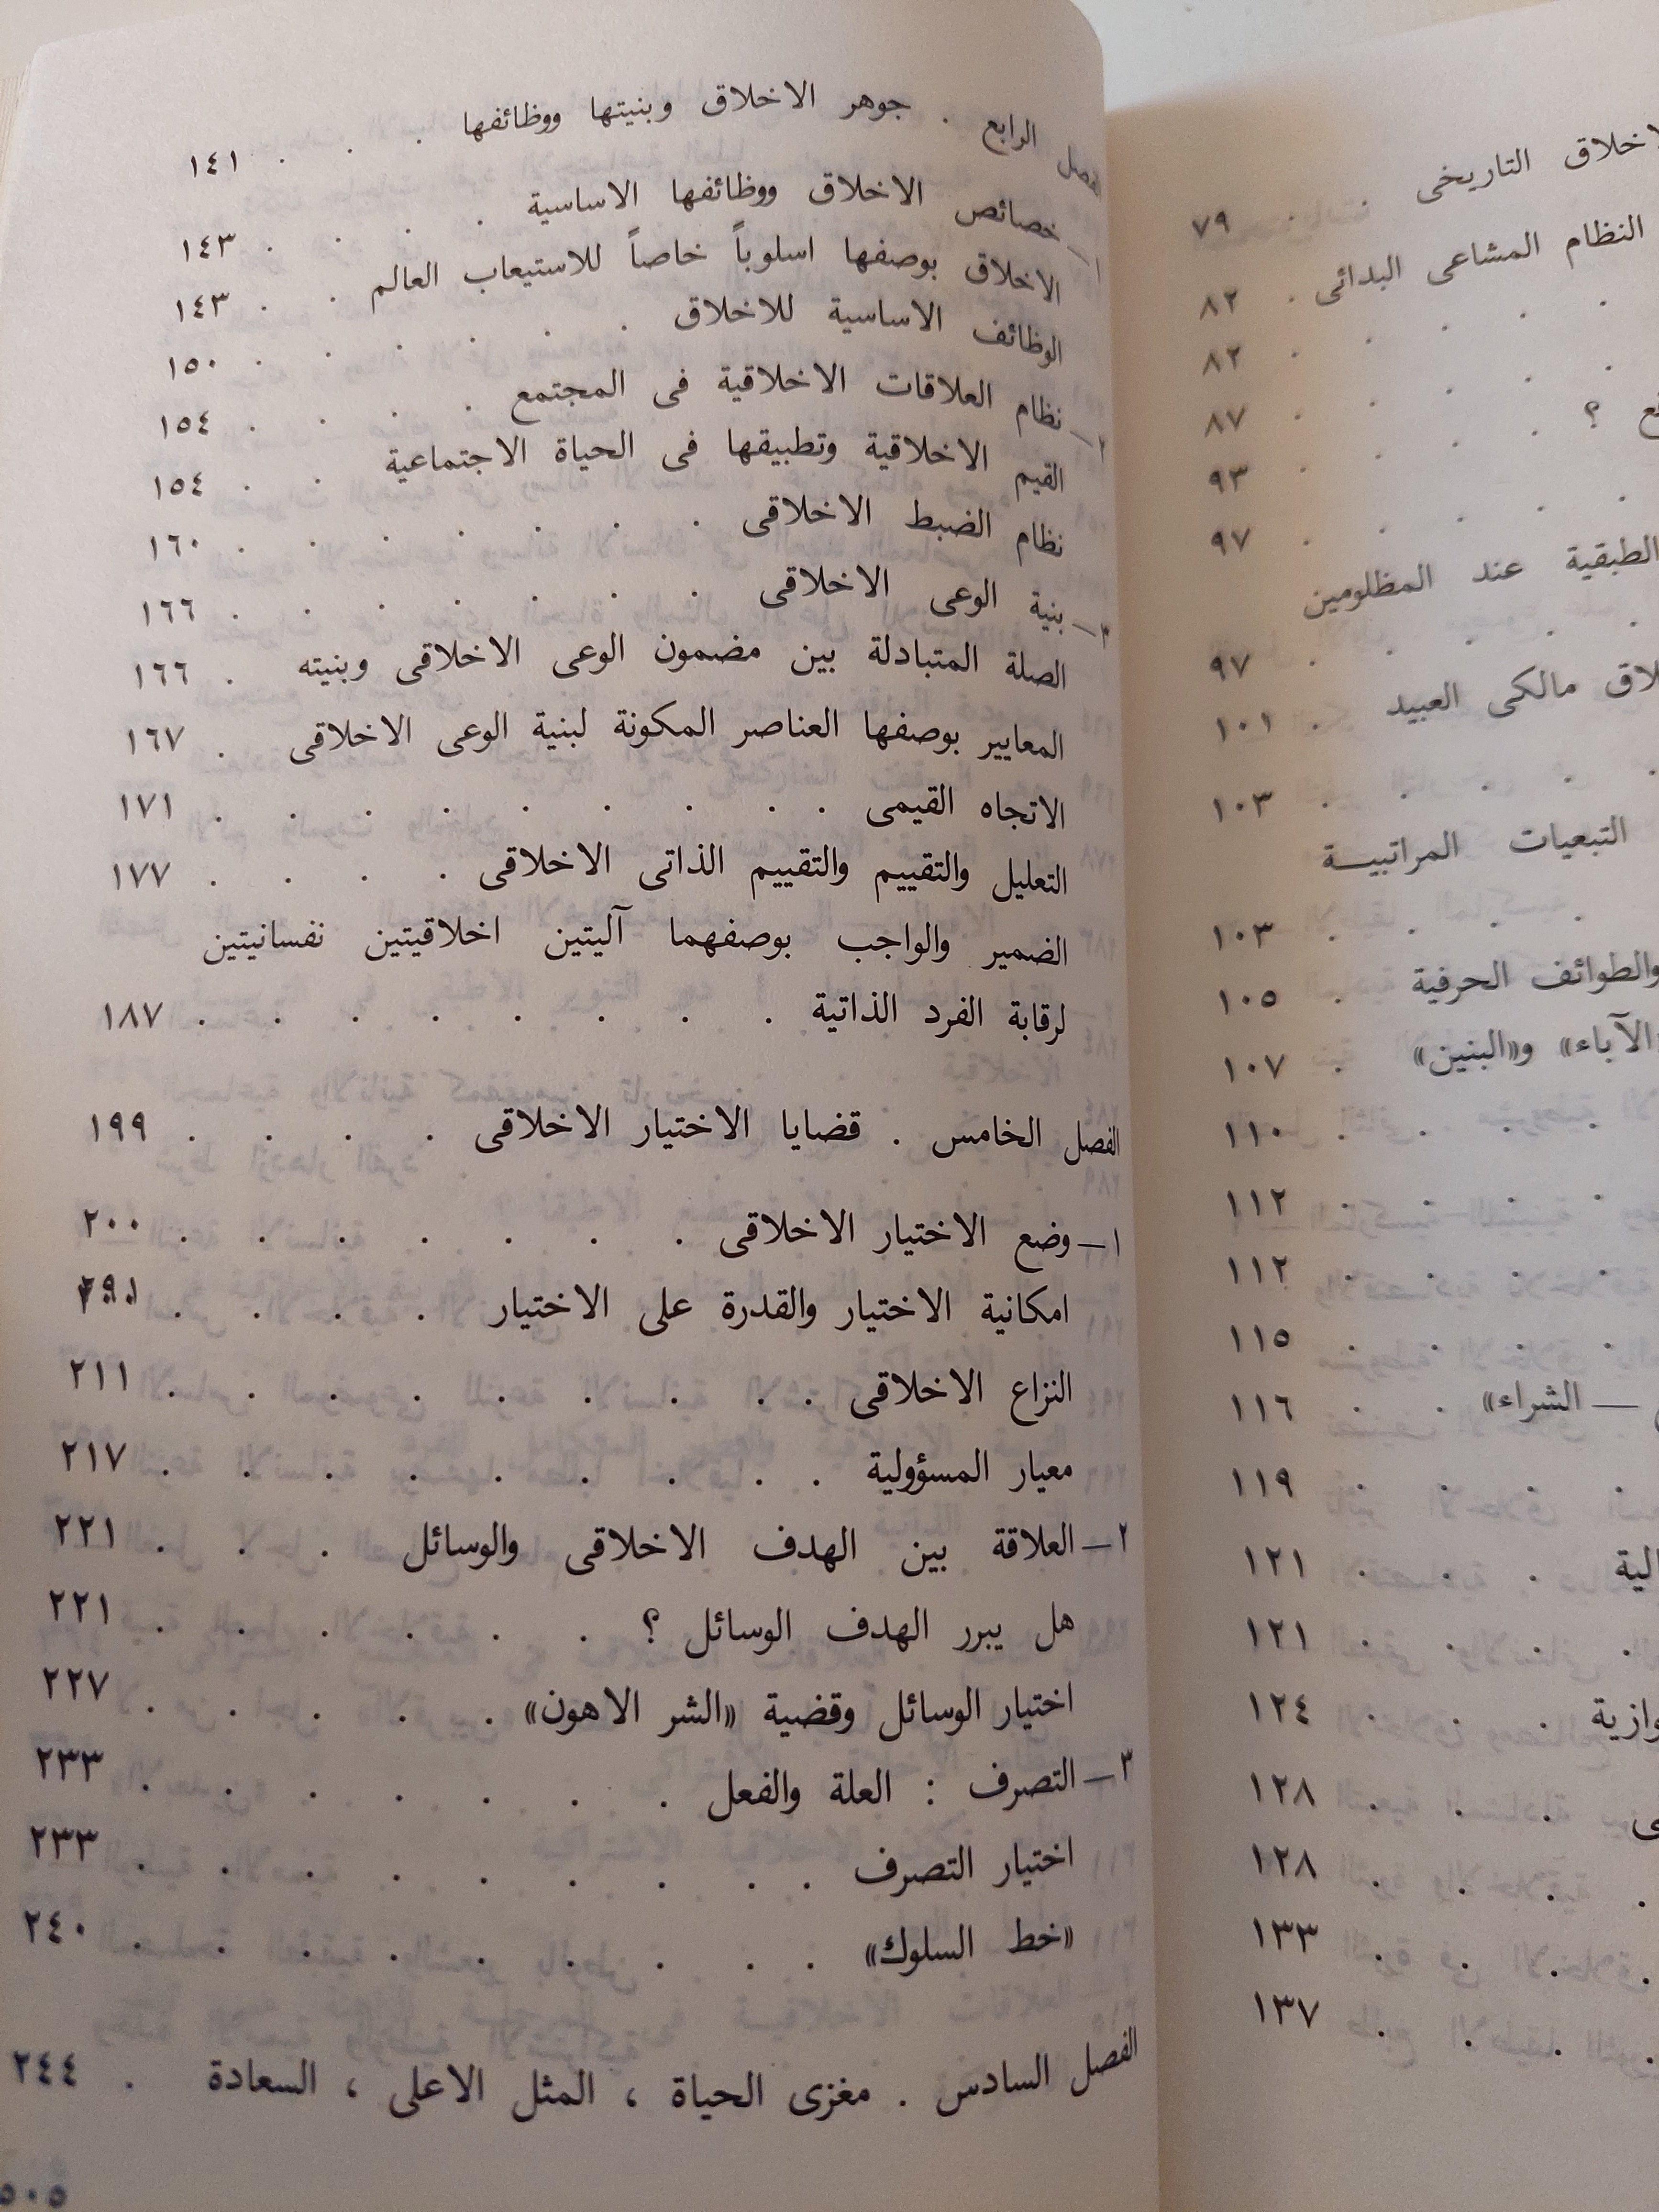 لاخلاق التاريخى . . ٧٩
النظام المشاعى البدائى . ٨٢
. . . . . ٨٢
؟ . . . ٨٧
. . . . ٩٣
. . . . ٩٧
الطبقية عند المظلومين
. . . . . ٩٧
مالكى العبيد . ١٠١
. . . . ١٠٣
التبعيات المراتبيــة
. . . . ١٠٣
والطوائف الحرفية . ١٠٥
الآباء» و«البنين» . ١٠٧
١١٠
١١٢
١١٢
١١٥
— الشراء» . . ١١٦
١١٩
١٢١
١٢١
١٢٤
١٢٨
١٢٨
١٣٣
١٣٧
الرابع . جوهر الاخلاق وبنيتها ووظائفها . . . ١٤١
١— خصائص الاخلاق ووظائفها الاساسية . . . . ١٤٣
الاخلاق بوصفها اسلوباً خاصاً للاستيعاب العالم . . ١٤٣
الوظائف الاساسية للاخلاق . . . . . . ١٥٠
٢— نظام العلاقات الاخلاقية فى المجتمع . . . . ١٥٤
القيم الاخلاقية وتطبيقها فى الحياة الاجتماعية . . ١٥٤
نظام الضبط الاخلاقى . . . . . . . ١٦٠
٣— بنية الوعى الاخلاقى . . . . . . . ١٦٦
الصلة المتبادلة بين مضمون الوعى الاخلاقى وبنيته . ١٦٦
المعايير بوصفها العناصر المكونة لبنية الوعى الاخلاقى . ١٦٧
الاتجاه القيمى . . . . . . . . . ١٧١
التعليل والتقييم والتقييم الذاتى الاخلاقى . . . . ١٧٧
الضمير والواجب بوصفهما آليتين اخلاقيتين نفسانيتين
لرقابة الفرد الذاتية . . . . . . . . ١٨٧
الفصل الخامس . قضايا الاختيار الاخلاقى . . . . ١٩٩
١— وضع الاختيار الاخلاقى . . . . . . . ٢٠٠
امكانية الاختيار والقدرة على الاختيار . . . .
النزاع الاخلاقى . . . . . . . . . ٢١١
معيار المسؤولية . . . . . . . . . ٢١٧
٢— العلاقة بين الهدف الاخلاقى والوسائل . . . ٢٢١
هل يبرر الهدف الوسائل ؟ . . . . . . ٢٢١
اختيار الوسائل وقضية «الشر الاهون» . . . . . ٢٢٧
٣— التصرف : العلة والفعل . . . . . . . ٢٣٣
اختيار التصرف . . . . . . . . . ٢٣٣
«خط السلوك» . . . . . . . . . ٢٤٠
الفصل السادس . مغزى الحياة ، المثل الاعلى ، السعادة . ٢٤٤
٥٠٥